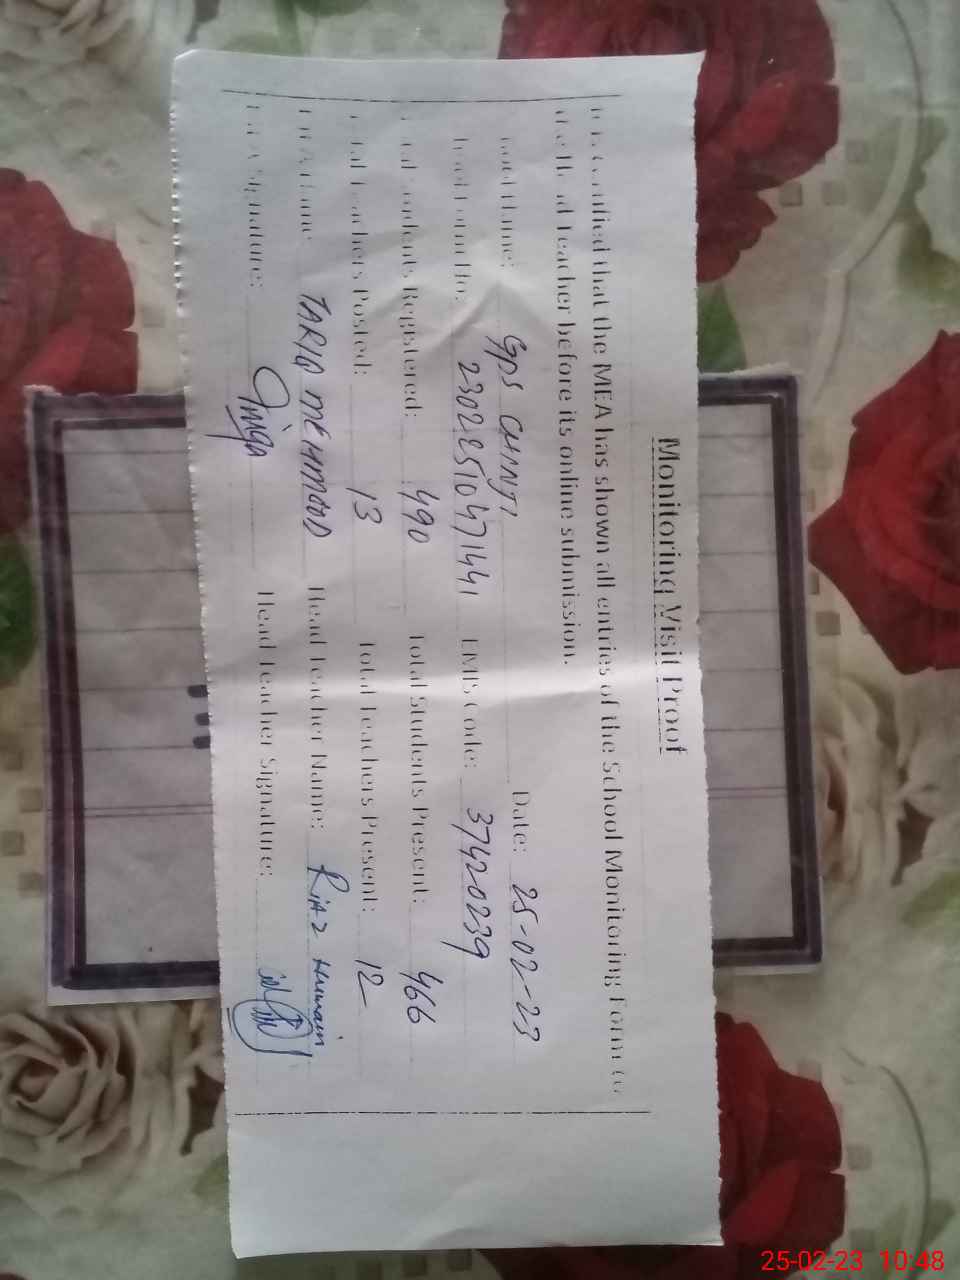 Monitoring Visit Proof
It is certified that the MEA has shown all entries of the School Monitoring Form to
the Head Teacher before its online submission.
School Name: GPS CHNJI Date: 25-02-23
2302851047144 EMIS Code: 37420239
Total Students Registered: 490 Total Students Present: 466
Total Teachers Posted: 13 Total Teachers Present: 12
MEA Name: TARIQ MEHMOOD Head Teacher Name: Riaz Hussain
MEA Signature: Head Teacher Signature:
25-02-23 10:48